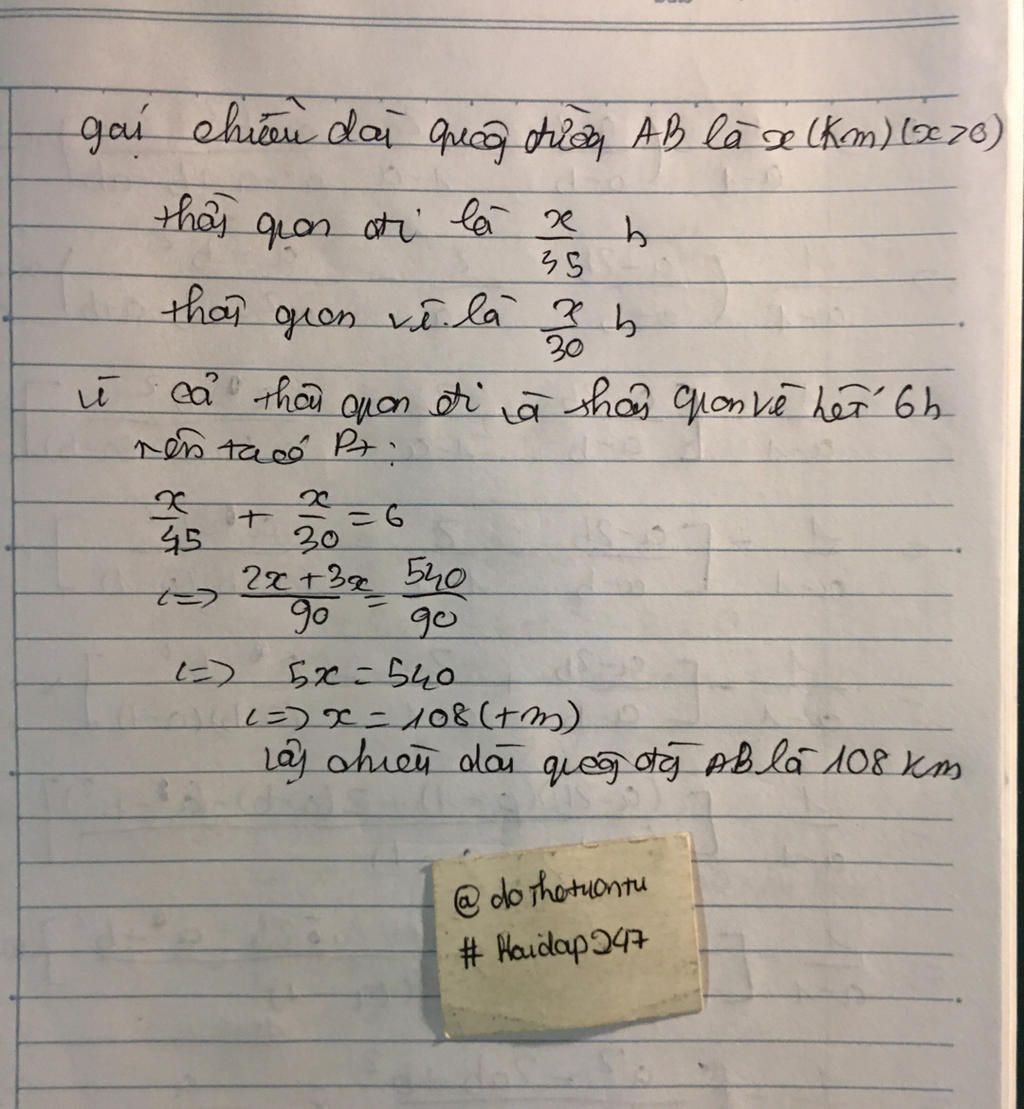 gọi chiều dài quãng đường AB là x (Km) (x>0)
thời gian đi là x/45 h
thời gian về là x/30 h
vì cả thời gian đi và thời gian về hết 6h
nên ta có Pt:
x/45 + x/30 = 6
<=> (2x+3x)/90 = 540/90
<=> 5x = 540
<=> x = 108 (tm)
Vậy chiều dài quãng đg AB là 108 km
@dothetuantu
# Hoidap247